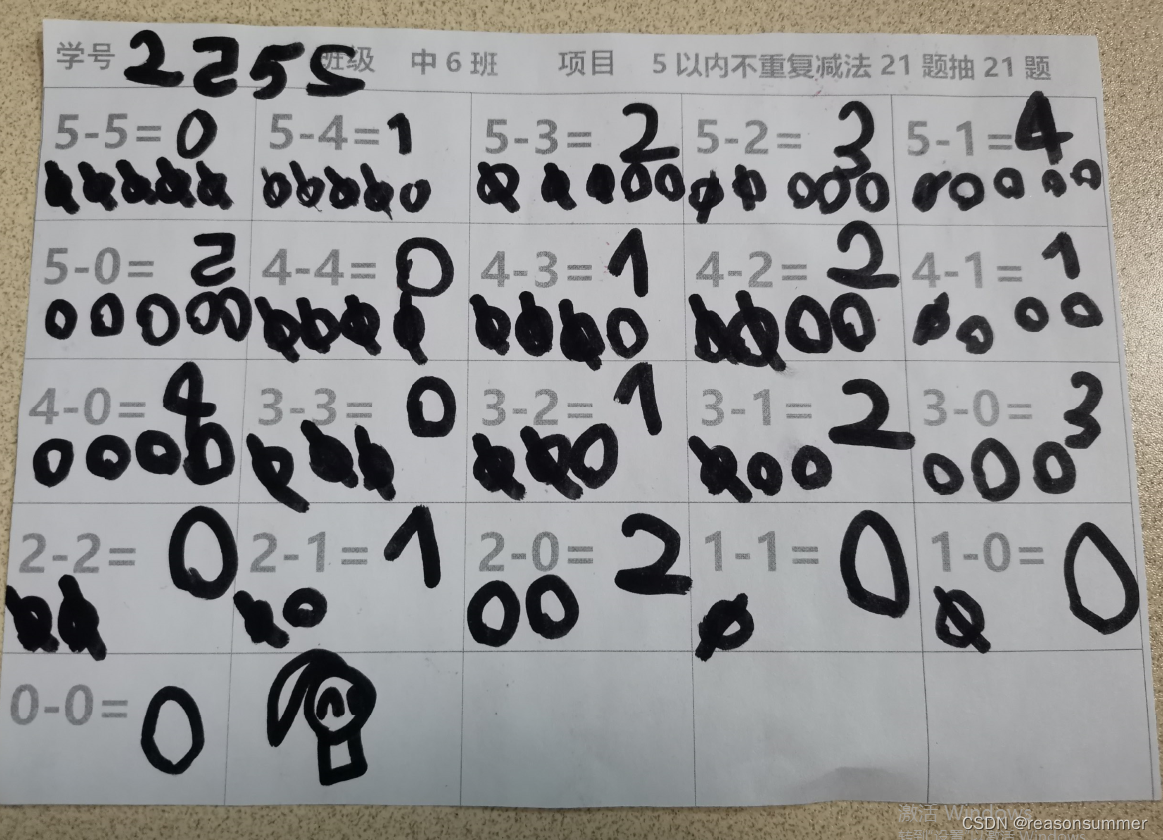 学号 2255 班级 中6班 项目 5以内不重复减法21题抽21题
5-5=0 5-4=1 5-3=2 5-2=3 5-1=4
5-0=2 4-4=0 4-3=1 4-2=2 4-1=1
4-0=4 3-3=0 3-2=1 3-1=2 3-0=3
2-2=0 2-1=1 2-0=2 1-1=0 1-0=0
0-0=0
激活 Windows
CSDN @reasonsummer